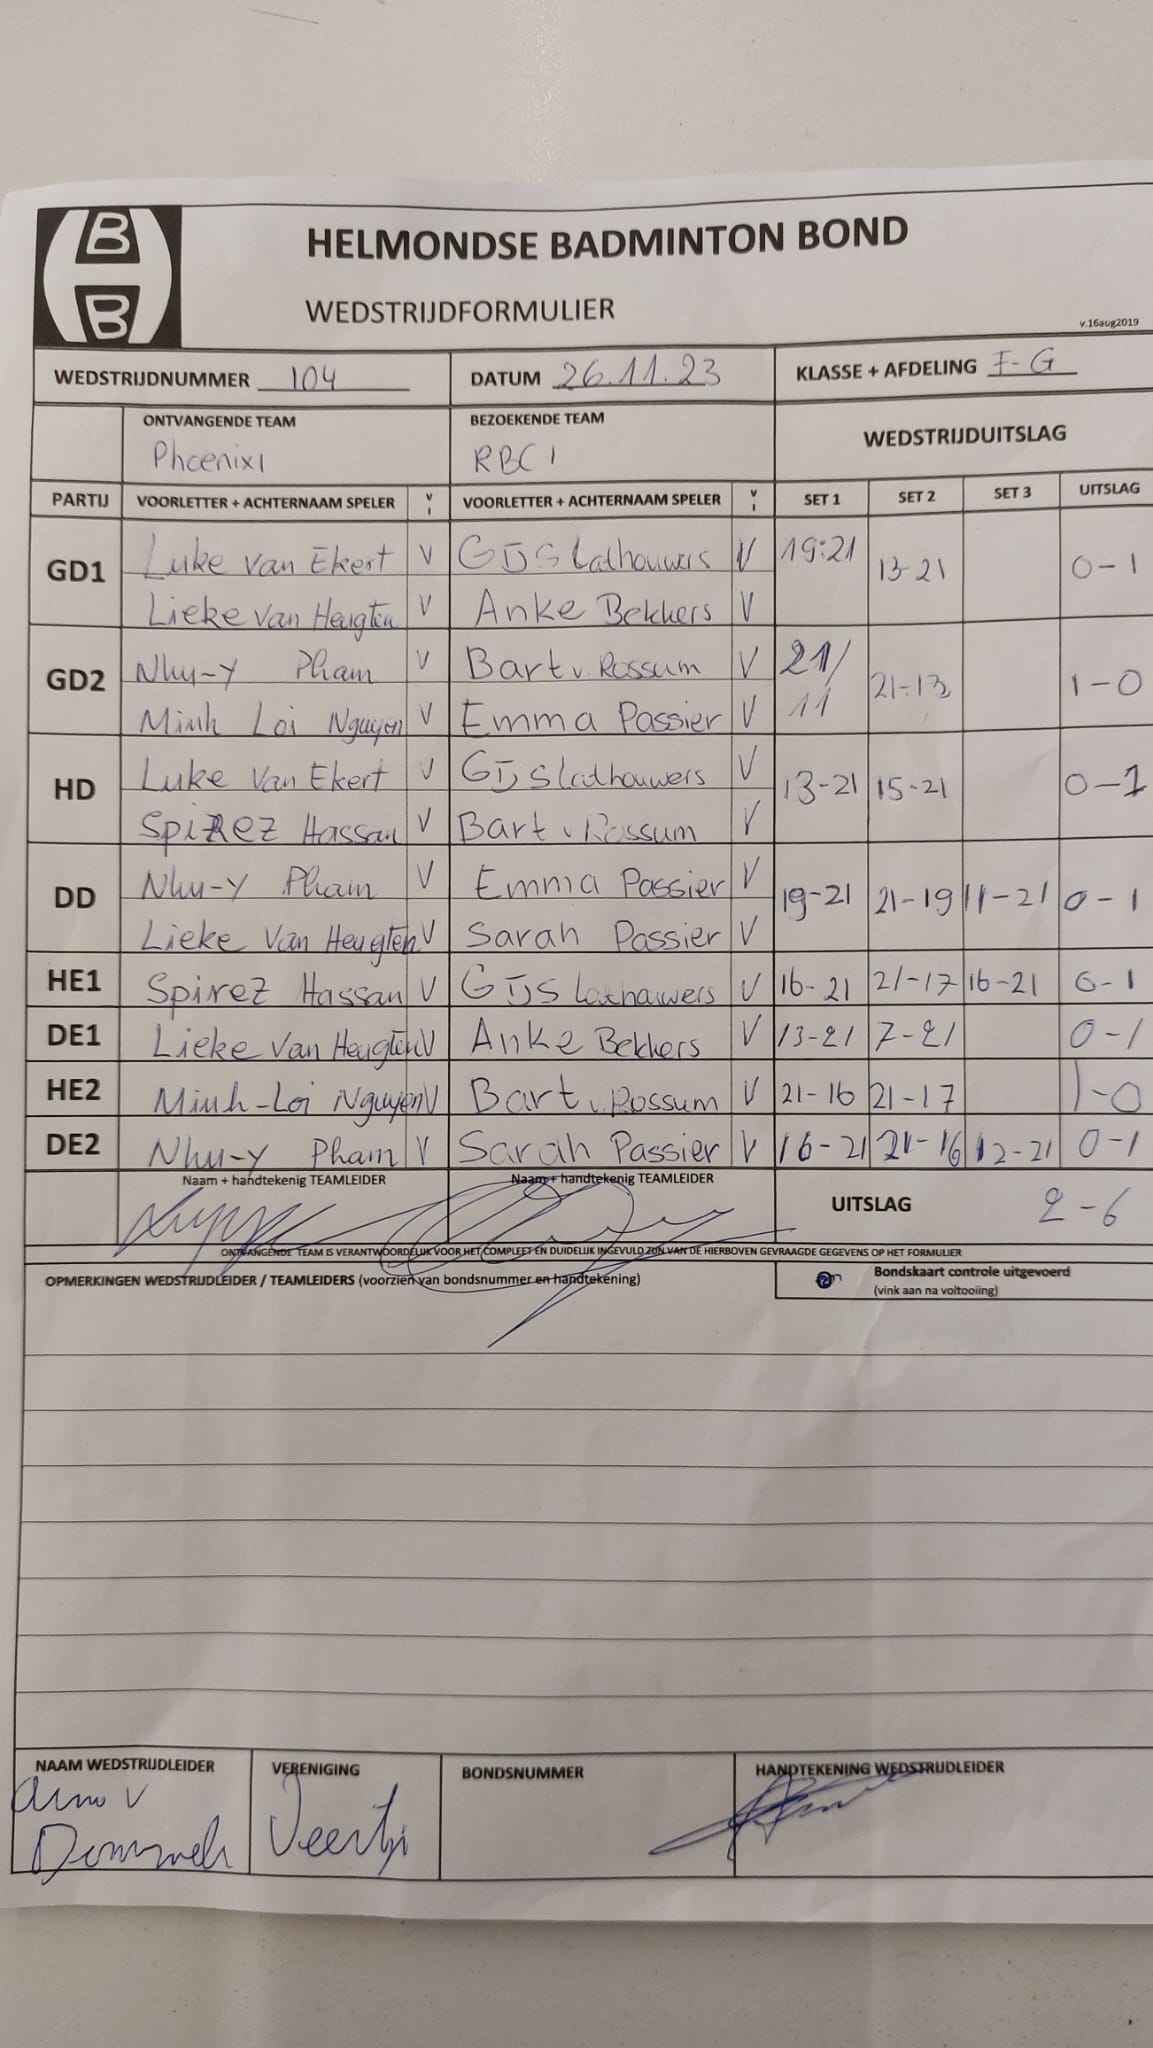 HELMONDSE BADMINTON BOND
WEDSTRIJDFORMULIER
v.16aug2019
WEDSTRIJDNUMMER 104 DATUM 26.11.23 KLASSE + AFDELING I-G
ONTVANGENDE TEAM BEZOEKENDE TEAM WEDSTRIJDUITSLAG
Phoenix1 RBC1
PARTIJ VOORLETTER + ACHTERNAAM SPELER V I VOORLETTER + ACHTERNAAM SPELER V I SET 1 SET 2 SET 3 UITSLAG
GD1 Luke Van Ekert V GIJS Lathouwers V 19:21 13-21 0-1
Lieke Van Heugten V Anke Bekkers V
GD2 Nhu-Y Pham V Bart v. Rossum V 21/11 21-13 1-0
Minh Loi Nguyen V Emma Passier V
HD Luke Van Ekert V GIJS Lathouwers V 13-21 15-21 0-1
Spirez Hassan V Bart v Rossum V
DD Nhu-Y Pham V Emma Passier V 19-21 21-19 11-21 0-1
Lieke Van Heugten V Sarah Passier V
HE1 Spirez Hassan V GIJS Lathouwers V 16-21 21-17 16-21 0-1
DE1 Lieke Van Heugten V Anke Bekkers V 13-21 7-21 0-1
HE2 Minh-Loi Nguyen V Bart v. Rossum V 21-16 21-17 1-0
DE2 Nhu-Y Pham V Sarah Passier V 16-21 21-16 12-21 0-1
Naam + handtekenig TEAMLEIDER Naam + handtekenig TEAMLEIDER UITSLAG 2-6
ONTVANGENDE TEAM IS VERANTWOORDELIJK VOOR HET COMPLEET EN DUIDELIJK INGEVULD ZIJN VAN DE HIERBOVEN GEVRAAGDE GEGEVENS OP HET FORMULIER
OPMERKINGEN WEDSTRIJDLEIDER / TEAMLEIDERS (voorzien van bondsnummer en handtekening) Bondskaart controle uitgevoerd
(vink aan na voltooiing)
NAAM WEDSTRIJDLEIDER VERENIGING BONDSNUMMER HANDTEKENING WEDSTRIJDLEIDER
Arno V